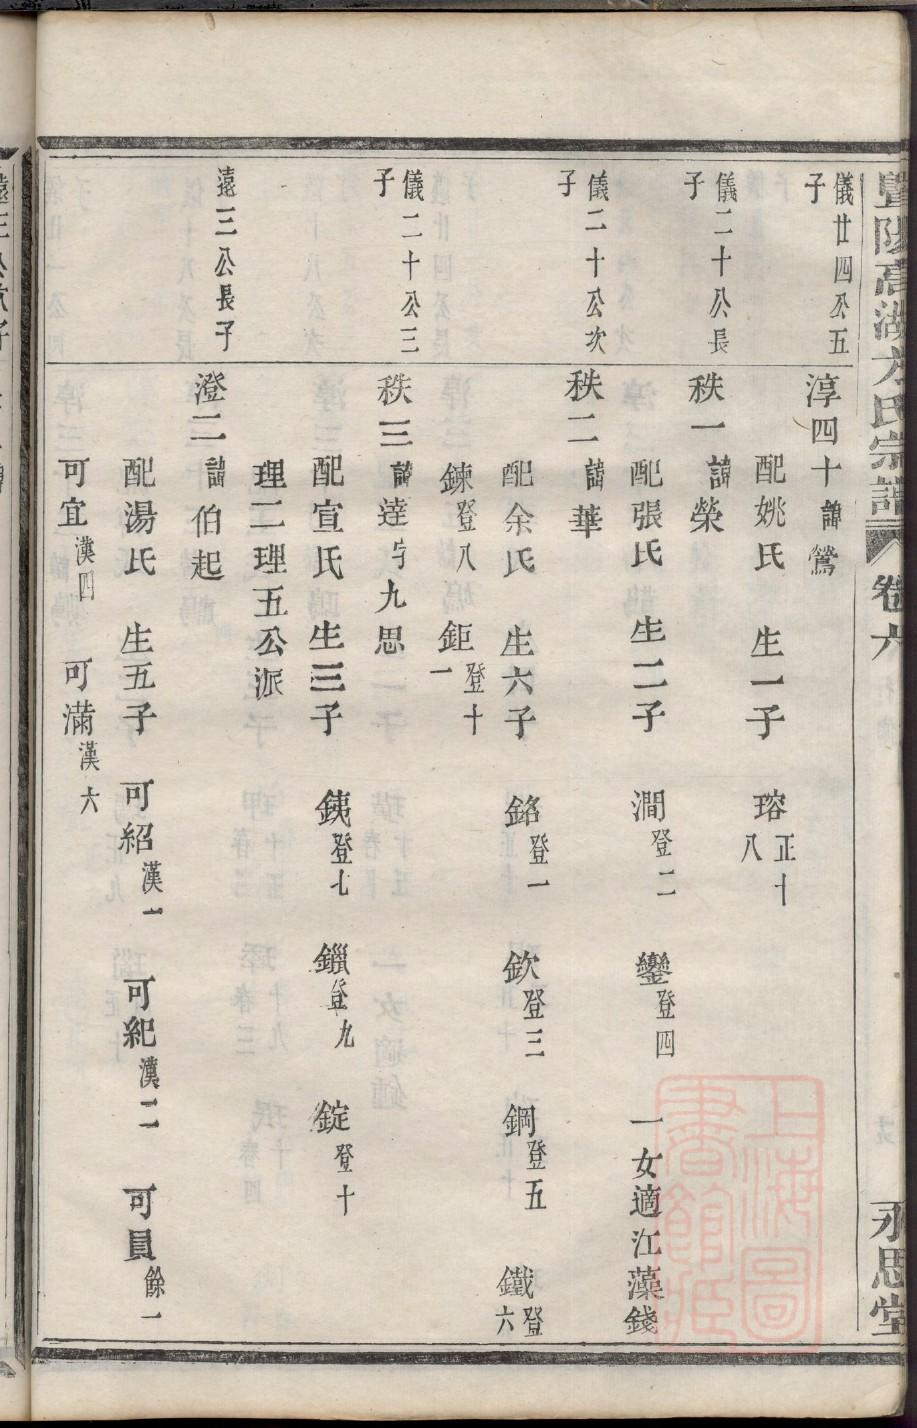 暨陽高湖方氏宗譜 卷六 永思堂
儀廿四公五子
淳四十 諱鶯
配姚氏 生一子 瑢正十八
儀二十公長子
秩一 諱榮
配張氏 生二子 澗登二 鑾登四 一女適江藻錢
儀二十公次子
秩二 諱華
配余氏 生六子 銘登一 欽登三 鋼登五 鐵登六
鍊登八 鉅登十一
儀二十公三子
秩三 諱達 字九思
配宣氏 生三子 銕登七 鑞登九 錠登十
理二理五公派
遠三公長子
澄二 諱伯起
配湯氏 生五子 可紹漢一 可紀漢二 可員餘一
可宜漢四 可滿漢六